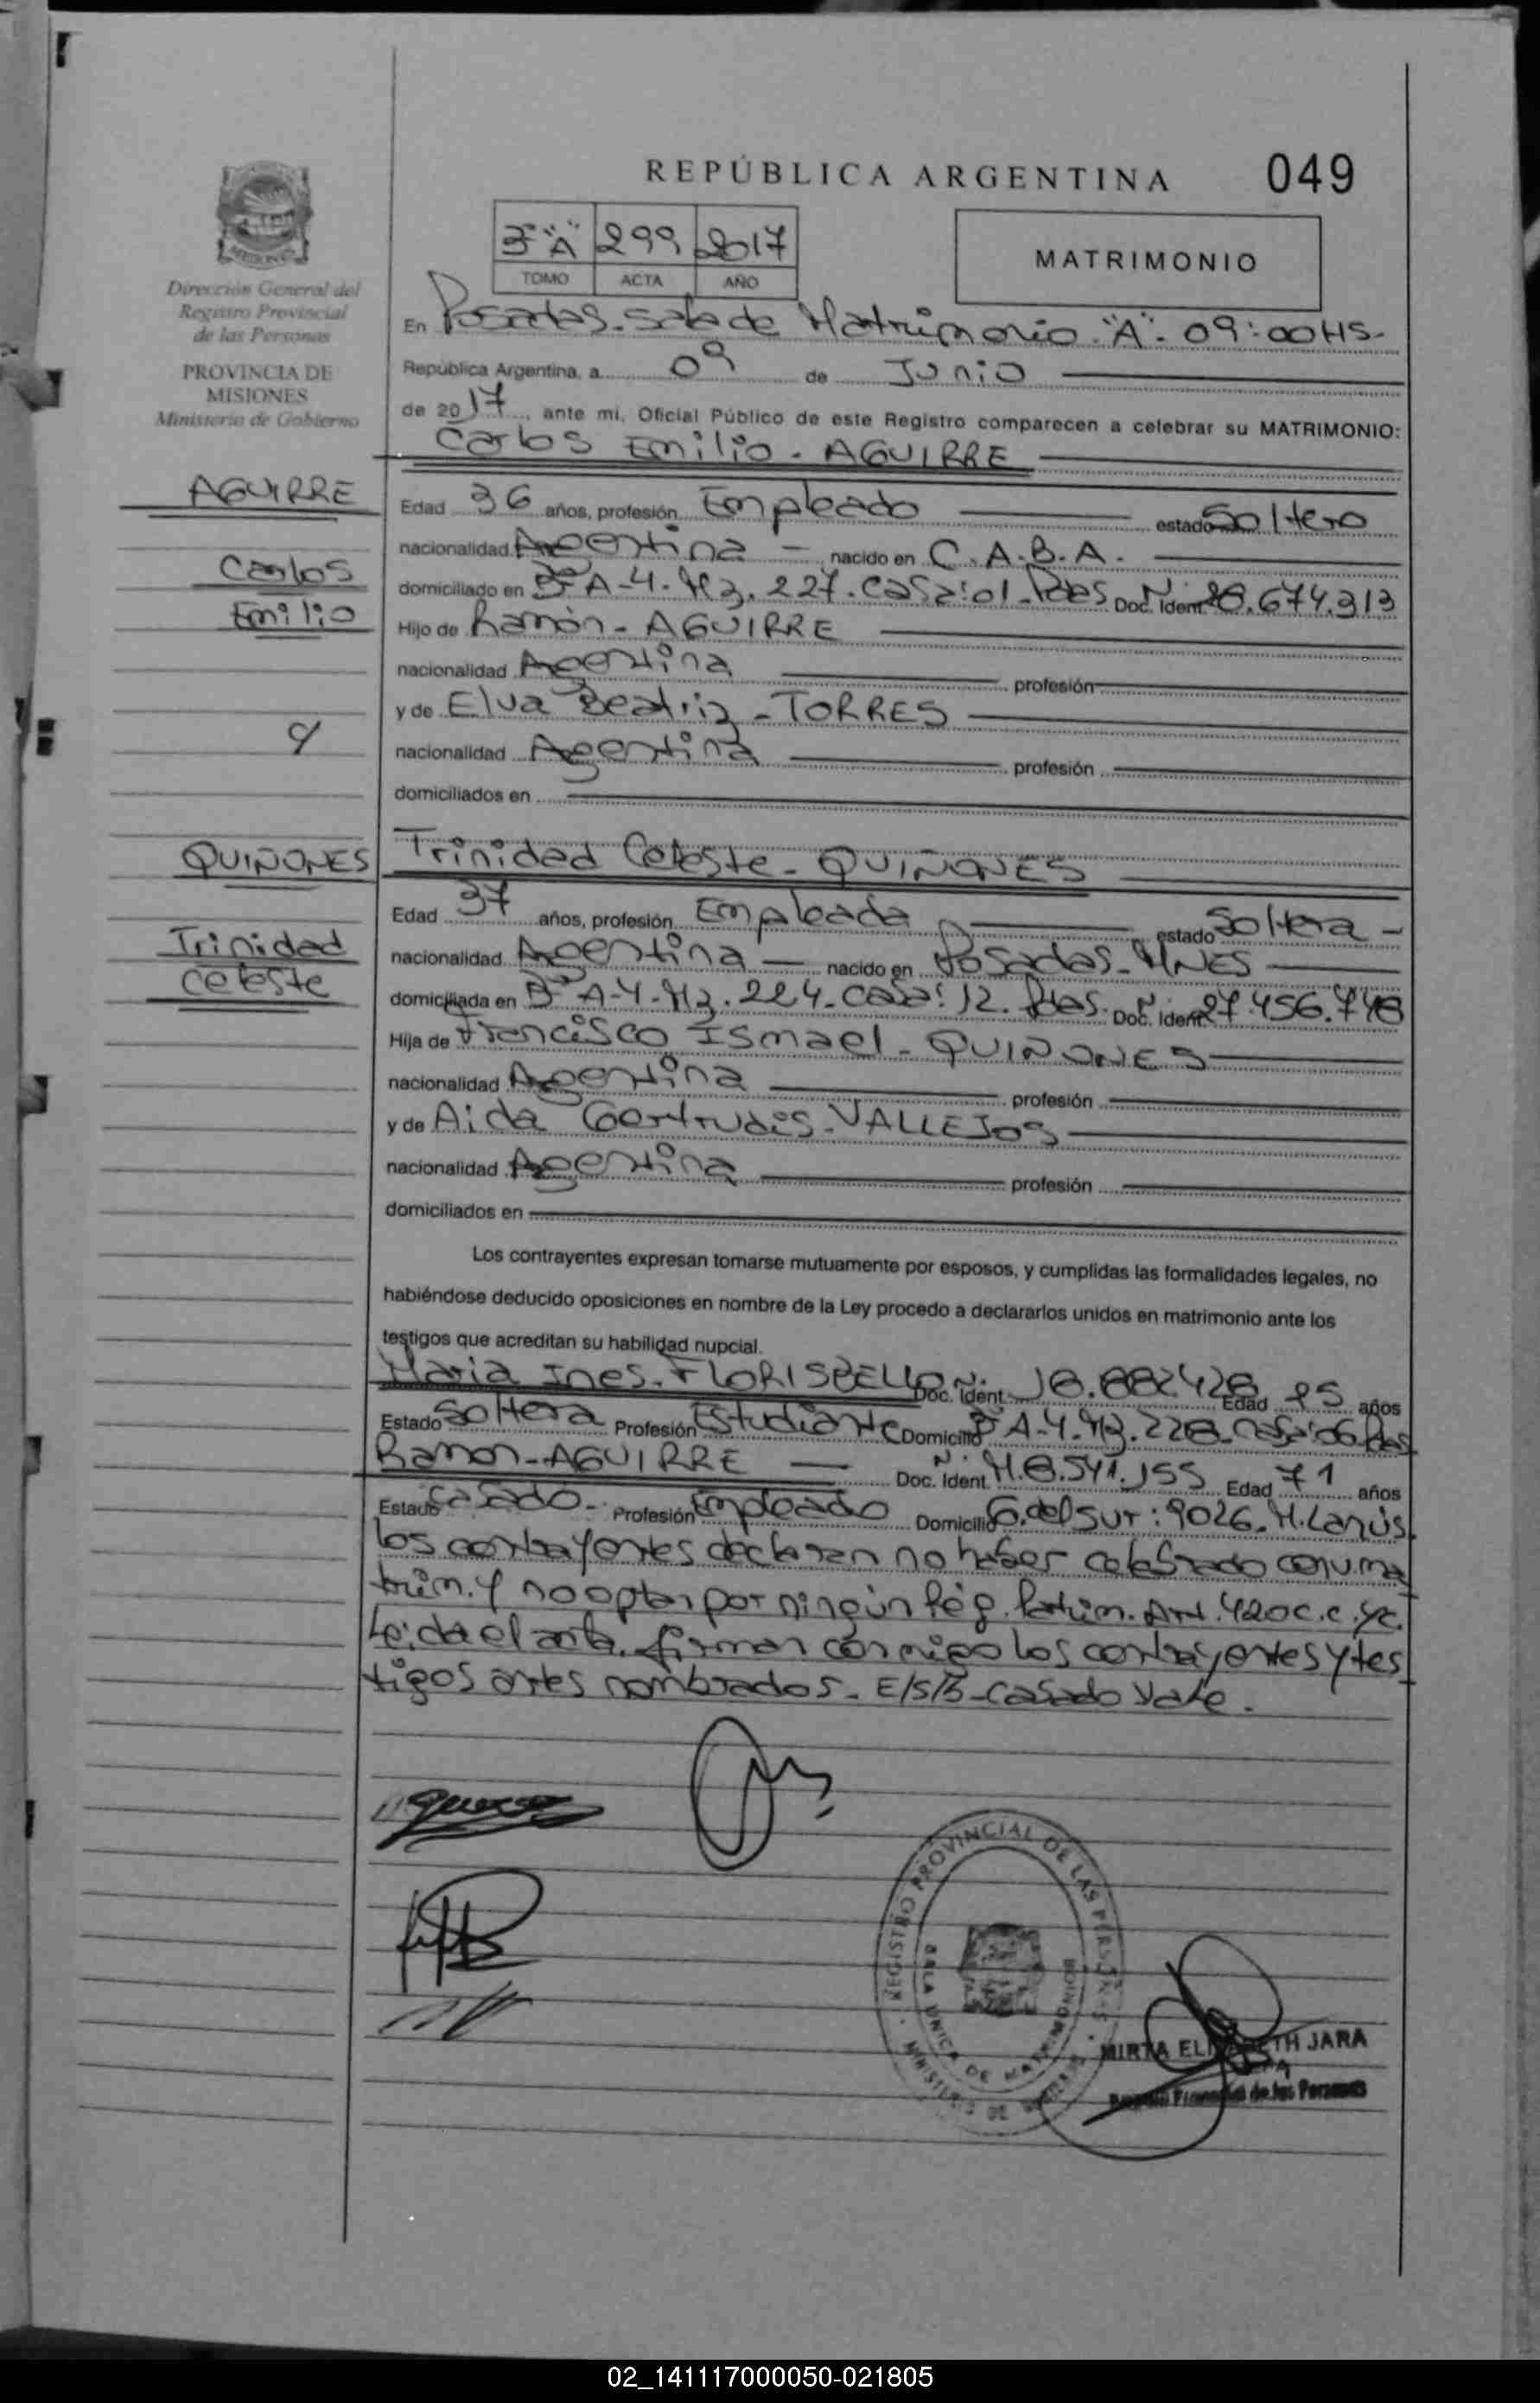 REPÚBLICA ARGENTINA 049
3º "A" 299 2017
TOMO ACTA AÑO
MATRIMONIO
Dirección General del
Registro Provincial
de las Personas
PROVINCIA DE
MISIONES
Ministerio de Gobierno
En Posadas-Sala de Matrimonio "A". 09:00HS-
República Argentina, a 09 de Junio
de 2017, ante mi, Oficial Público de este Registro comparecen a celebrar su MATRIMONIO:
Carlos Emilio - AGUIRRE
AGUIRRE
Carlos
Emilio
Edad 36 años, profesión Empleado estado Soltero
nacionalidad Argentina - nacido en C.A.B.A.
domiciliado en Bº A-4. Mz. 227. Casa: 01. Pdas Doc. Ident. Nº 28.674.313
Hijo de Ramón - AGUIRRE
nacionalidad Argentina profesión
y de Elva Beatriz - TORRES
nacionalidad Argentina profesión
domiciliados en
y
QUIÑONES
Trinidad
Celeste
Trinidad Celeste - QUIÑONES
Edad 37 años, profesión Empleada estado Soltera -
nacionalidad Argentina - nacido en Posadas - MNES
domiciliada en Bº A-4. Mz. 224. Casa: 12. Pdas. Doc. Ident. Nº 27.456.748
Hija de Francisco Ismael - QUIÑONES
nacionalidad Argentina profesión
y de Aida Gertrudis - VALLEJOS
nacionalidad Argentina profesión
domiciliados en
Los contrayentes expresan tomarse mutuamente por esposos, y cumplidas las formalidades legales, no
habiéndose deducido oposiciones en nombre de la Ley procedo a declararlos unidos en matrimonio ante los
testigos que acreditan su habilidad nupcial.
Maria Ines - FLORISBELLO Doc. Ident. Nº Edad años
Estado Soltera Profesión Estudiante Domicilio Bº A-4. Mz. 228. Casa: 06 Pdas
Ramon - AGUIRRE - Doc. Ident. Nº M.8.541.155 Edad 71 años
Estado Casado - Profesión Empleado Domicilio G. del Sur: 9026. M. Lanús.
los contrayentes declaran no haber celebrado conv. ma
trim. y no optan por ningún Rég. Patrim. Art. 420 c.c. yc.
Leida el acta, firman conmigo los contrayentes y tes
tigos antes nombrados. E/S/B - Casado Vale.
REGISTRO PROVINCIAL DE LAS PERSONAS
SALA UNICA DE MATRIMONIOS
MINISTERIO DE GOBIERNO
MIRTA ELIZABETH JARA
Registro Provincial de las Personas
02_141117000050-021805